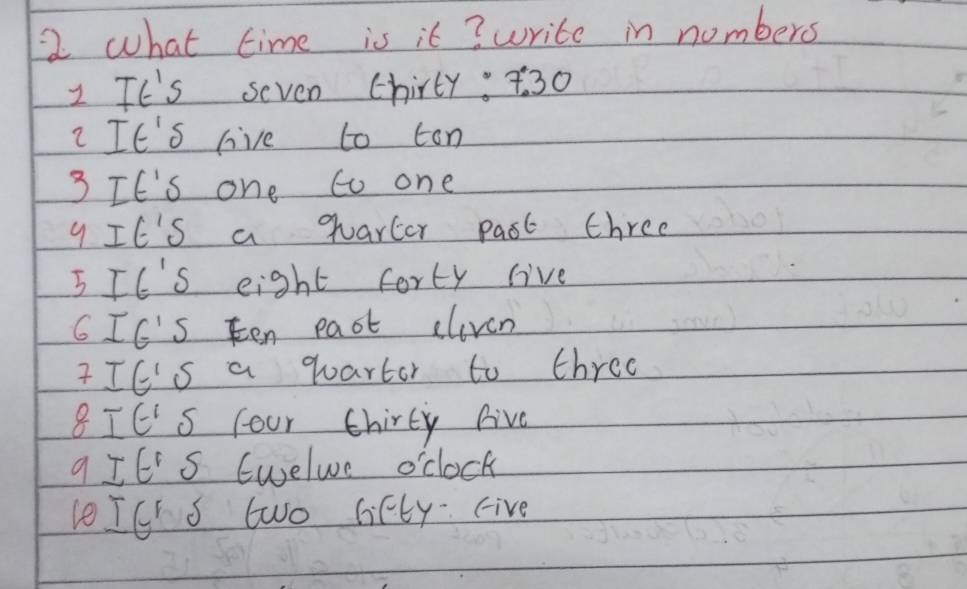 2 What time is it ? write in numbers
1 It's seven thirty : 7:30
2 It's five to ten
3 It's one to one
4 It's a quarter past three
5 It's eight forty five
6 It's ten past eleven
7 It's a quarter to three
8 It's four thirty five
9 It's twelwe o'clock
10 It's two fifty-five